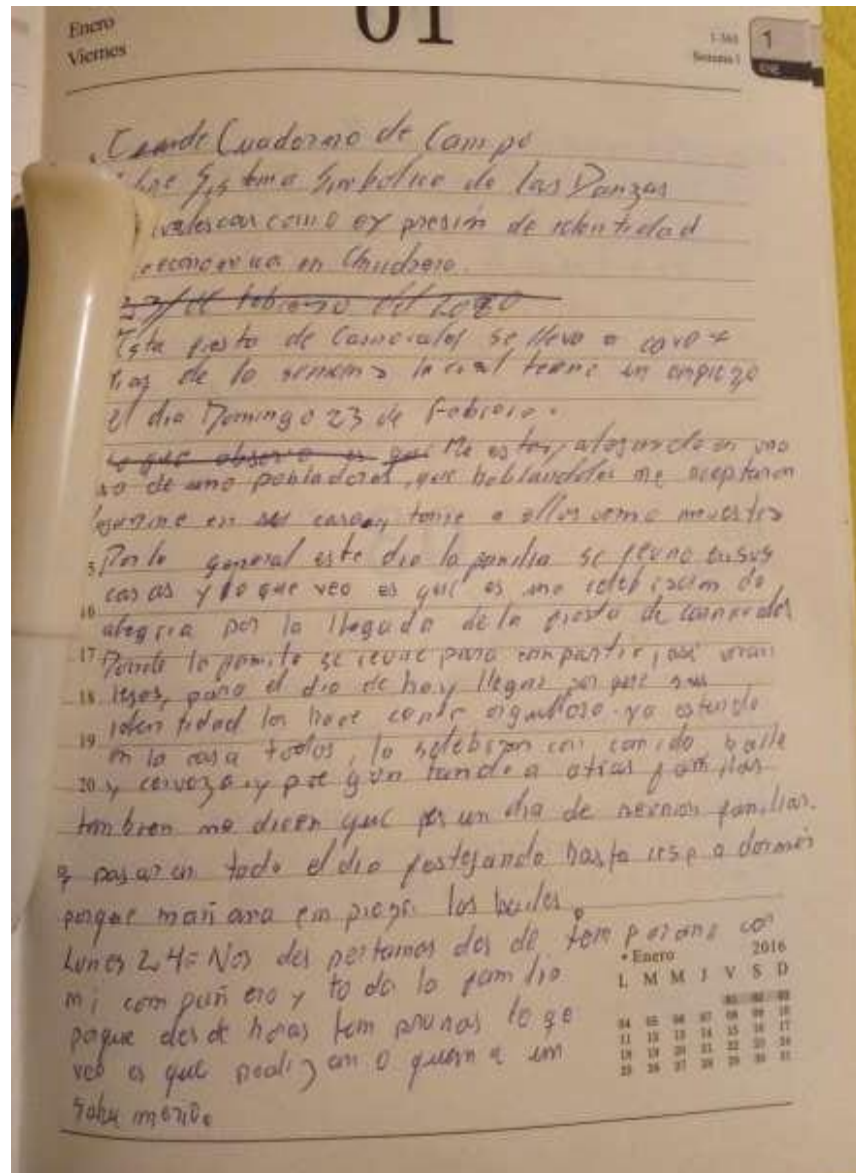 Enero
Viernes
01
1-365
Semana 1
1
ENE
Cuaderno de Campo
Sistema Simbolico de las Danzas
como expresión de identidad
en
23/de febrero del 2020
Esta fiesta de Carnavales se lleva a cavo
de la semana la cual tiene un empiezo
el dia Domingo 23 de Febrero.
Lo que observo es que Me estoy alojando en una
de uno pobladores, que hablandoles me aceptaron
en sus casas, tome a ellos como muestra
Por lo general este dia la familia se reune en sus
casas y lo que veo es que es una celebracion de
16 alegria por la llegada de la fiesta de carnavales
17 Donde la familia se reune para compartir, asi vivan
18 lejos, para el dia de hoy llegan por que sus
identidad los hace sentir orgulloso. yo estando
19 en la casa todos, lo selebran con comida baile
20 y cerveza. y preguntando a otras familias
tambien me dicen que es un dia de reunion familiar.
y pasaran todo el dia festejando hasta irse a dormir
porque mañana empieza los bailes.
Lunes 24: Nos despertamos desde temprano con
mi compañero y toda la familia
porque desde horas tempranas lo qe
veo es que realizan o queman un
Sahumerio
• Enero 2016
L M M J V S D
01 02 03
04 05 06 07 08 09 10
11 12 13 14 15 16 17
18 19 20 21 22 23 24
25 26 27 28 29 30 31